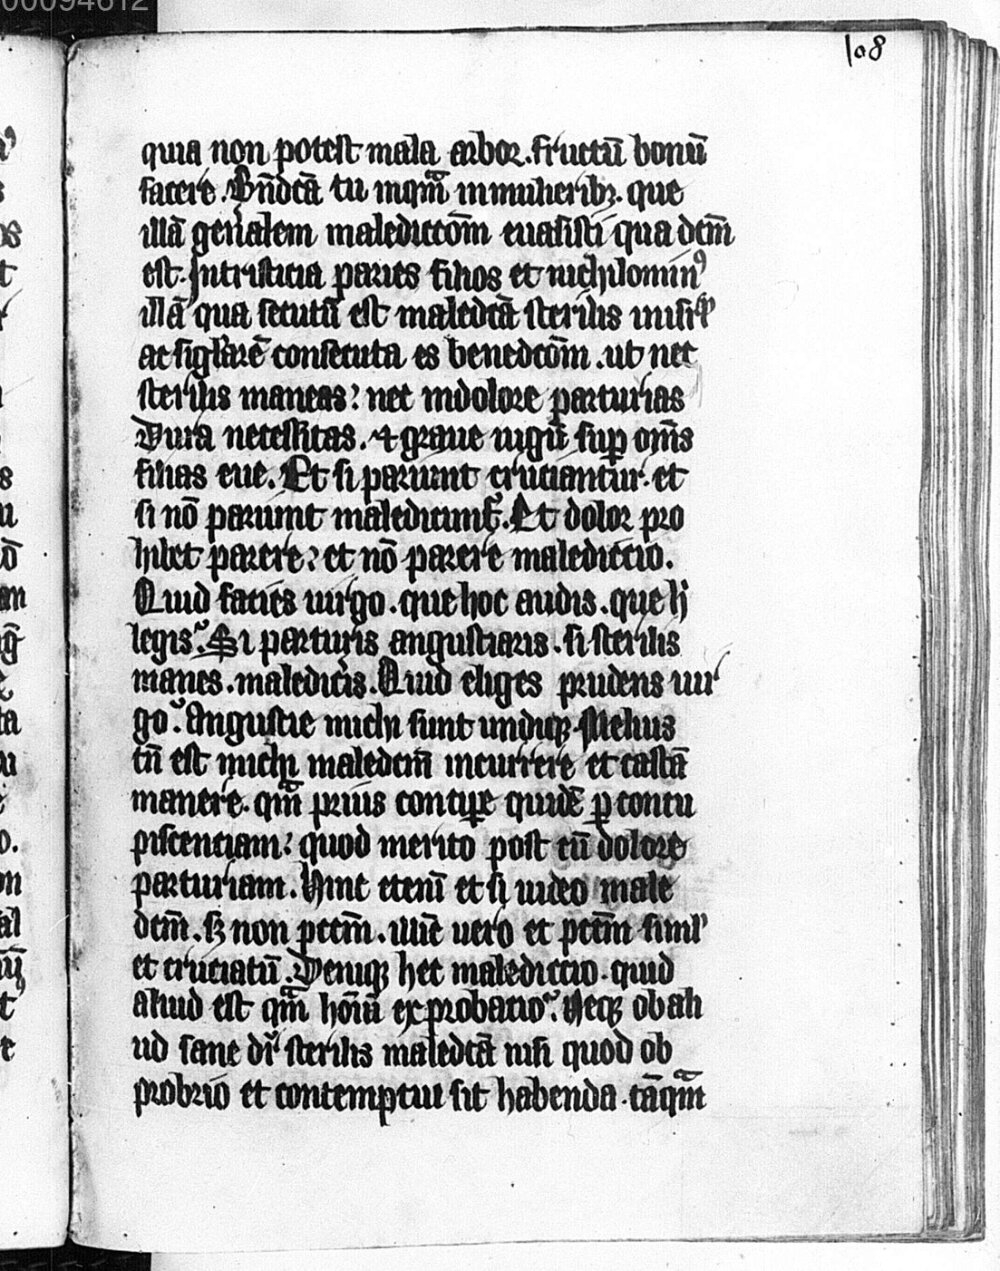 00094612
108
quia non potest mala arbor. fructū bonū
facere. Bn̄dcā tu inqm̄ in mulieribꝫ. que
illā gen̄alem maledictōm euasisti qua dcm̄
est. In tristicia paries filios et nichilominꝰ
illā qua secutū est maledcā sterilis
ac sigl̄arē consecuta es benedcōm. ut nec
sterilis maneas: nec in dolore parturias
Dura necessitas. ⁊ graue iugū sup om̄s
filias eue. Et si pariunt cruciantur. et
si nō pariunt maledicunt̄. Et dolor pro
hibet parere: et nō parere maledictio.
Quid facies uirgo. que hoc audis. que h
legis. Si parturis angustiaris. si sterilis
manes. malediceris. Quid eliges prudens uir
go. Angustie michi sunt undiqꝫ. Melius
tn̄ est michi maledcm̄ incurrere et castā
manere. qm̄ prius concipe quidē ꝑ concu
piscenciam: quod merito post cū dolore
parturiam. Hinc etenī et si uideo male
dcm̄. sꝫ non pctm̄. illīc uero et pctm̄ siml'
et cruciatū. Deniqꝫ hec maledictio. quid
aliud est qm̄ hoīū exprobatio. Neqꝫ ob ali
ud sane dr̄ sterilis maledcā nisi quod ob
probrio et contemptui sit habenda. tāqm̄